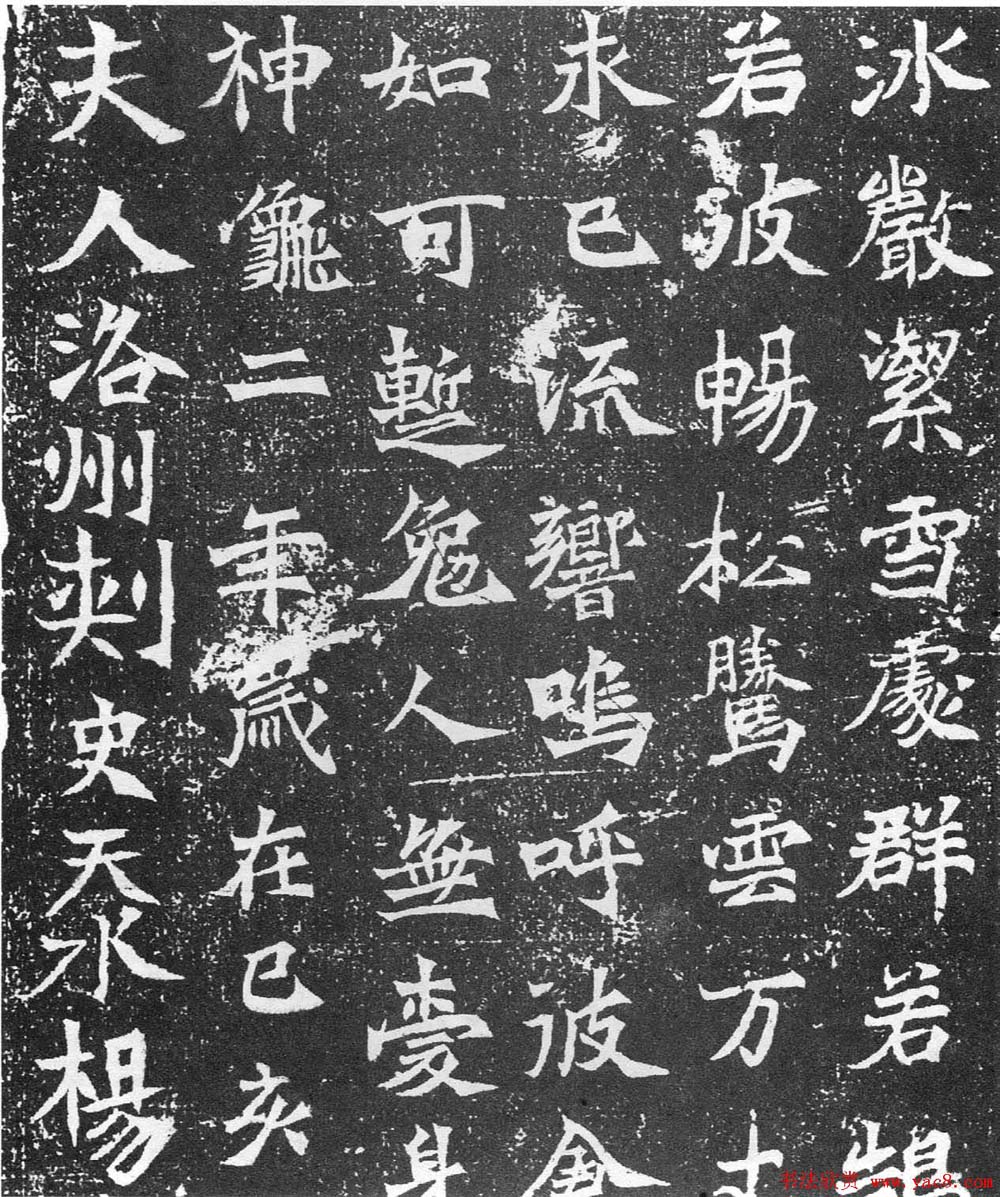 冰巖潔雪處群若
若披暢松騰雲万
永已流響嗚呼彼
如可蹔兔人無憂
神龜二年歲在己亥
夫人洛州刺史天水楊
书法欣赏 www.yac8.com